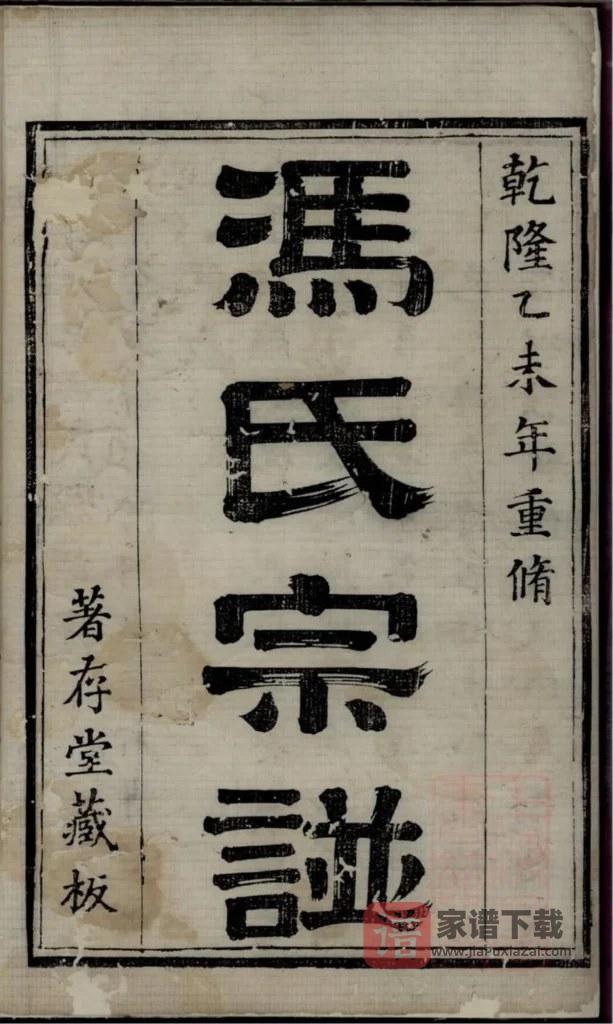 乾隆乙未年重脩
馮氏宗譜
著存堂藏板
谱 家谱下载
www.jiapuxiazai.com